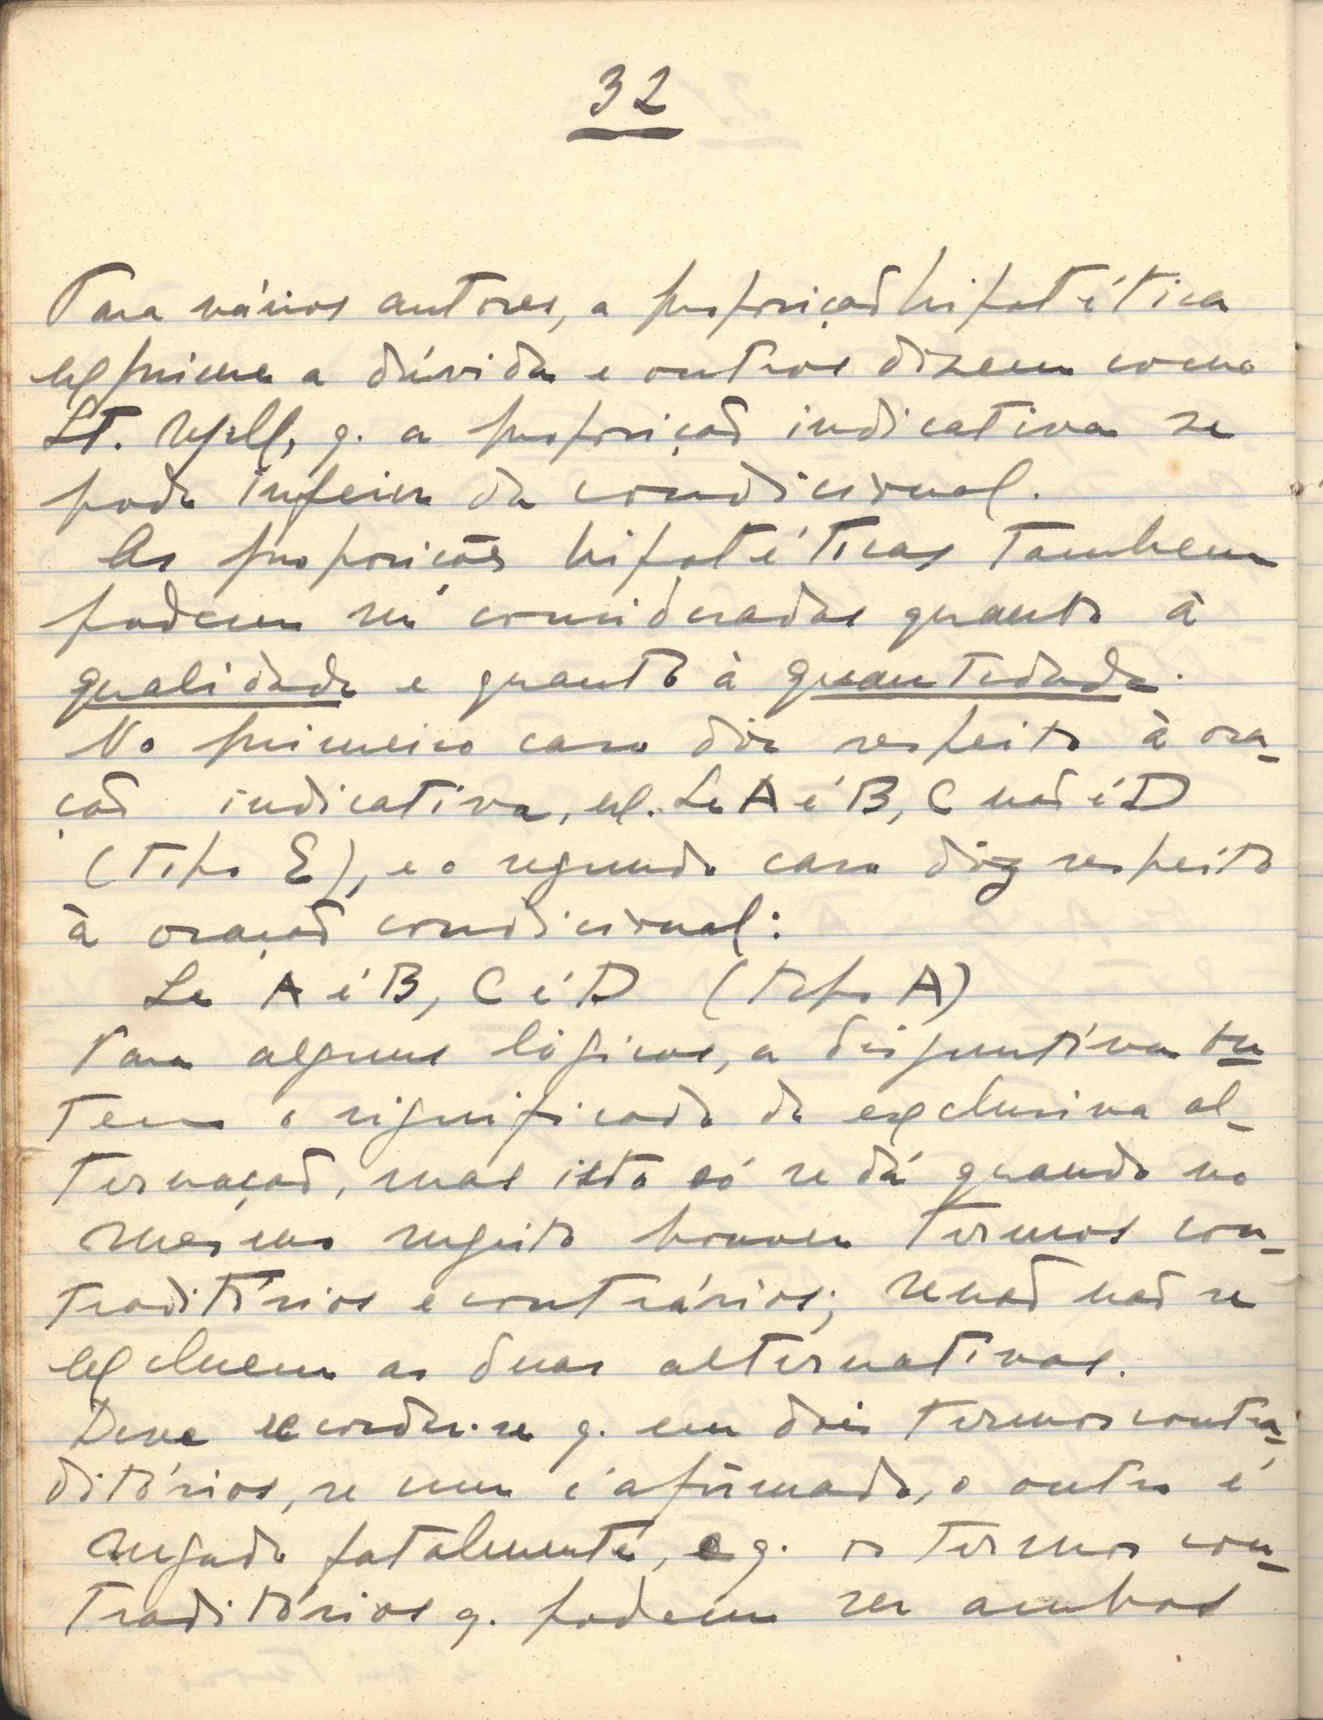 32
Para vários autores, a proposição hipotética
exprime a dúvida e outros dizem como
St. Mill, q. a proposição indicativa se
pode inferir da condicional.
As proposições hipotéticas tambem
podem ser consideradas quanto à
qualidade e quanto à quantidade.
No primeiro caso diz respeito à ora-
ção indicativa, ex. Se A é B, C não é D
(tipo E), e o segundo caso diz respeito
à oração condicional:
Se A é B, C é D (tipo A)
Para alguns lógicos, a disjuntiva ou
tem o significado de exclusiva al-
ternação, mas isto só se dá quando no
mesmo sujeito houver termos con-
traditórios e contrários; senão não se
excluem as duas alternativas.
Deve recordar-se q. em dois termos contra-
ditórios, se um é afirmado, o outro é
negado fatalmente, e q. os termos con-
traditórios q. podem ser ambos